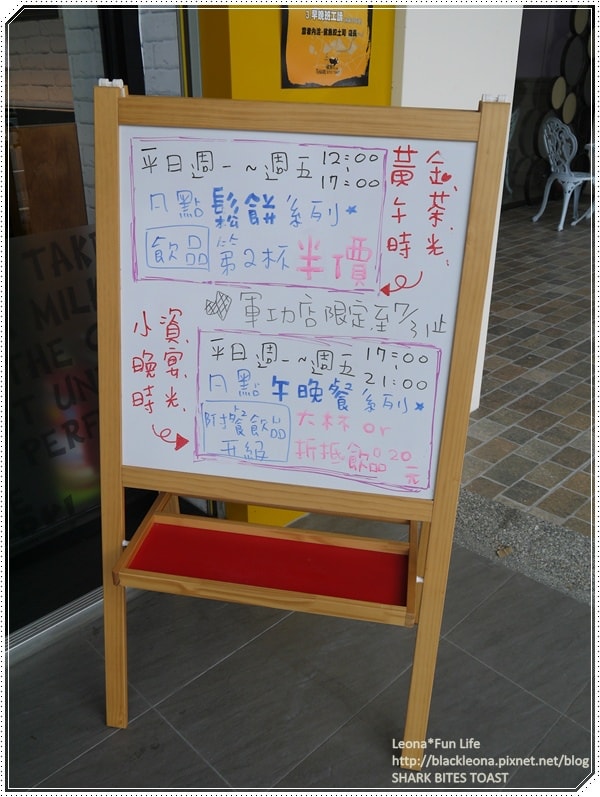 3 早晚班工讀
意者內洽-鯊魚咬土司 店長
平日週一~週五 12:00
17:00
凡點鬆餅系列*
飲品 第2杯半價
黃金
午茶
時光
軍功店限定至7/31止
小資
晚宴
時光
平日週一~週五 17:00
21:00
凡點 午晚餐系列*
附餐飲品
升級
大杯 or
折抵飲品20元
TAKE
MIL
THE C
T UN
PERF
Leona*Fun Life
http://blackleona.pixnet.net/blog
SHARK BITES TOAST